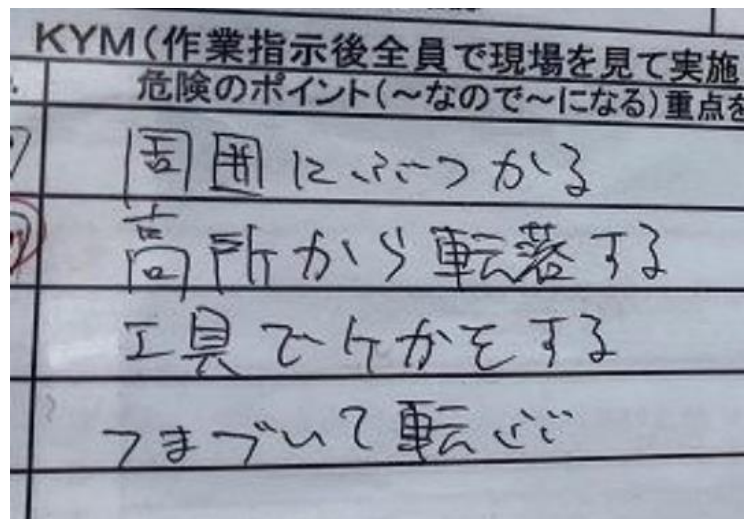 KYM(作業指示後全員で現場を見て実施
危険のポイント(～なので～になる)重点を
周囲にぶつかる
高所から転落する
工具でケガをする
つまづいて転ぶ